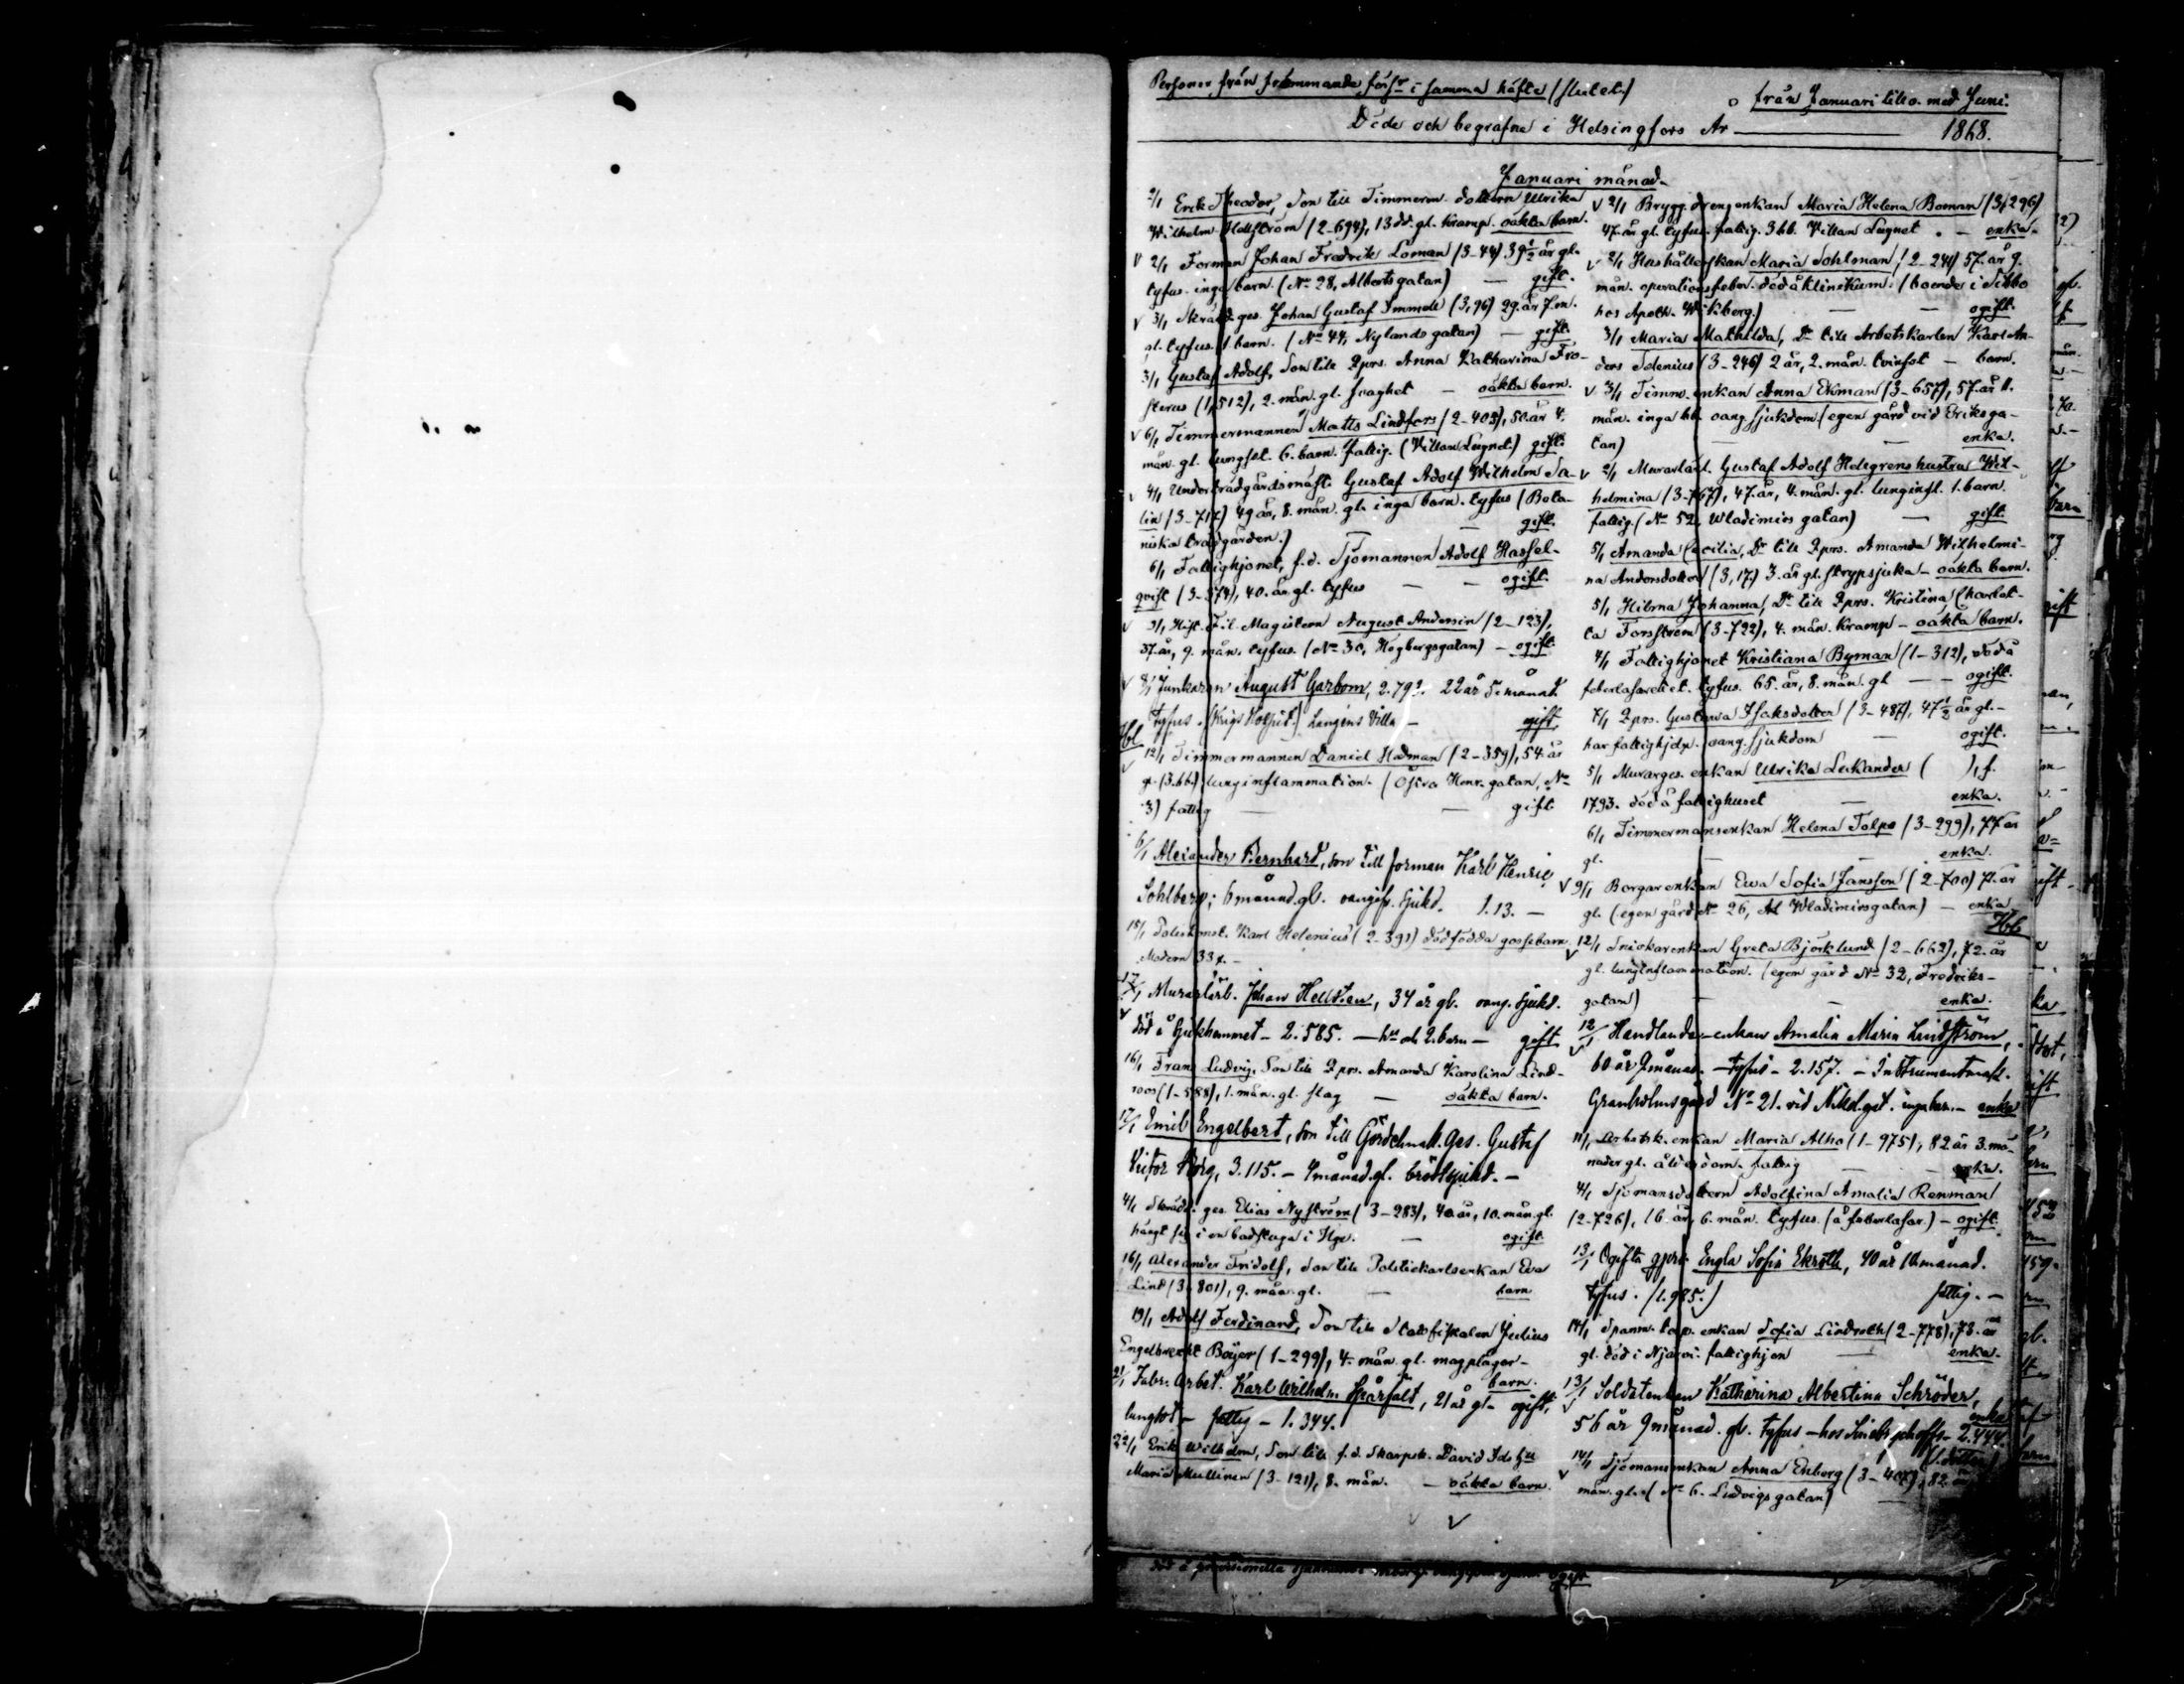 Personer från främmande förs:r i samma häfte (slutet)
från Januari till o. med Juni.
Döde och begrafne i Helsingfors År 1868.
Januari månad.
2/1 Erik Theodor, Son till Timmerm. dottern Ulrika
Wilhelm Hellström (2-694), 13 dd. gl. kramp. oäkta barn.
V 2/1 Forman Johan Fredrik Loman (3-44) 39 1/2 år gl.
tyfus. inga barn. (No 28, Albertsgatan) — gift.
V 3/1 Skrädd. ges. Johan Gustaf Immell (3,96) 29. år 7. m.
gl. tyfus. 1 barn. (No 44, Nylands gatan) — gift.
3/1 Gustaf Adolf, Son till Qprs. Anna Katharina Fro-
sterus (1,512), 2. mån. gl. svaghet — oäkta barn.
V 6/1 Timmermannen Matts Lindfors (2-403), 50. år 4.
mån. gl. lungsot. 6. barn. fattig. (Villan Lugnet.) gift.
V 4/1 Underträdgårdsmäst. Gustaf Adolf Wilhelm Sa-
lin (3-717) 49 år, 8. mån. gl. inga barn. tyfus (Bota-
niska trädgården.) — gift.
6/1 Fattighjonet, f.d. Sjömannen Adolf Hassel-
qvist (3-574), 40. år gl. tyfus — — ogift.
V 9/1 Fil. Magistern August Andersin (2-123),
37. år, 9. mån. tyfus. (No 30, Högbergsgatan) — ogift.
V 8/1 Junkaren August Garbom, 2.793. 22 år 5 månad.
Tyfus. (Krigs Hospit.) Langéns Villa — gift
Hbl
V 12/1 Timmermannen Daniel Hedman (2-359), 54. år
gl. (3. bb.) lunginflammation. (Östra Henr. gatan, No
3) fattig — — gift
6/1 Alexander Bernhard, son till forman Karl Henric
Sohlberg; 6 månad. gl. oangifv. sjukd. 1.13. —
15/1 Karl Helenius (2-391) dödfödda gossebarn.
Modern 33 —
17/1 Murarlärl. Johan Hellstén, 34 år gl. oang. sjukd.
V död å Sjukhemmet — 2.585. — hu och 2. barn — gift
16/1 Frans Ludvig, Son till Qprs. Amanda Karolina Lind-
roos (1-588), 1. mån. gl. slag — oäkta barn.
17/1 Emil Engelbert, son till Gördelmak. Ges. Gustaf
Victor Borg, 3.115. — 4 månad. gl. bröstsjukd. —
4/1 Skrädd. ges. Elias Nyström (3-283), 40 år, 10. mån. gl.
hängt sig i en badstuga i Hge. — ogift.
16/1 Alexander Fridolf, Son till Politiekarlsenkan Eva
Lind (3-801), 9. mån. gl. — barn
19/1 Adolf Ferdinand, Son till Stadsfiskalen Julius
Engelbrekt Böijer (1-299), 4. mån. gl. magplågor —
barn.
21/1 Fabr. Arbet. Karl Wilhelm Skärfält, 21 år gl. — ogift.
lungsot — fattig — 1.344.
22/1 Erik Wilhelm, Son till f.d. Skarpsk. David Ids hu
Maria Mullinen (3-121), 8. mån. — oäkta barn.
V
V 2/1 Brygg. drengenkan Maria Helena Boman (3,296)
47. år gl. tyfus. fattig. 3 bb. Villan Lugnet. — enka.
V 2/1 Hushållerskan Maria Sohlman (2-241) 57. år 9.
mån. operationsfeber. död å klinikum. (boende i Sibbo
hos Apoth. Wikberg.) — — ogift.
3/1 Maria Mathilda, Dr till Arbetskarlen Karl An-
ders Selenius (3-246) 2 år, 2. mån. tvinsot — barn.
V 3/1 Timm. enkan Anna Ekman (3-657), 57. år 11.
mån. inga bb. oang. sjukdom (egen gård vid Eriksga-
tan) — — enka.
V 2/1 Murarlärl. Gustaf Adolf Hellgrens hustru Wil-
helmina (3-767), 47. år, 4. mån. gl. lunginfl. 1. barn.
fattig. (No 52, Wladimirs gatan) — gift.
5/1 Amanda Cecilia, Dr till Qprs. Amanda Wilhelmi-
na Andersdotter (3,17) 3. år gl. strypsjuka — oäkta barn.
5/1 Hilma Johanna, Dr till Qprs. Kristina Charlot-
ta Forsström (3-722), 4. mån. Kramp — oäkta barn.
4/1 Fattighjonet Kristiana Byman (1-312), död å
feberlasarettet. tyfus. 65. år, 8. mån. gl — — ogift.
7/1 Qprs. Gustava Isaksdotter (3-487), 47 1/2 år gl. —
har fattighjelp. oang. sjukdom — ogift.
5/1 Murarges. enkan Ulrika Leckander ( ), f.
1793. död å fattighuset — enka.
6/1 Timmermansenkan Helena Talpo (3-299), 77 år
gl. — — enka.
V 9/1 Borgarenkan Ewa Sofia Jansson (2-700) 71. år
gl. (egen gård No 26, Wladimirsgatan) — enka
Hbl
V 12/1 Snickarenkan Greta Björklund (2-662), 72. år
gl. lunginflammation. (egen gård No 32, Fredriks-
gatan) — — enka.
V 12/1 Handlande-enkan Amalia Maria Lindström,
60 år 9 månad. — tyfus — 2.157. — Instrumentmak.
Granholms gård No 21. vid Nikol. gat. inga barn. — enka
11/1 Arbetsk. enkan Maria Alho (1-975), 82 år 3. må-
nader gl. ålderdom. fattig — — enka.
4/1 Sjömansdottern Adolfina Amalia Renman
(2-726), 16. år, 6. mån. tyfus. (å feberlasar.) — ogift.
13/1 Ogifta qprs. Engla Sofia Ekroth, 40 år 10 månad.
tyfus. (1.985.) fattig. —
14/1 Spanm. kap. enkan Sofia Lindroth (2-778), 73. år
gl. död i fattighjon — enka.
V 13/1 Soldatenkan Katharina Albertina Schröder,
enka
56 år 9 månad. gl. tyfus — hos Sinebrychoffs — 2.444.
V 14/1 Sjömansenkan Anna Enberg (3-407), 82. år
mån. gl. (No 6. Ludvigsgatan) —
ogift